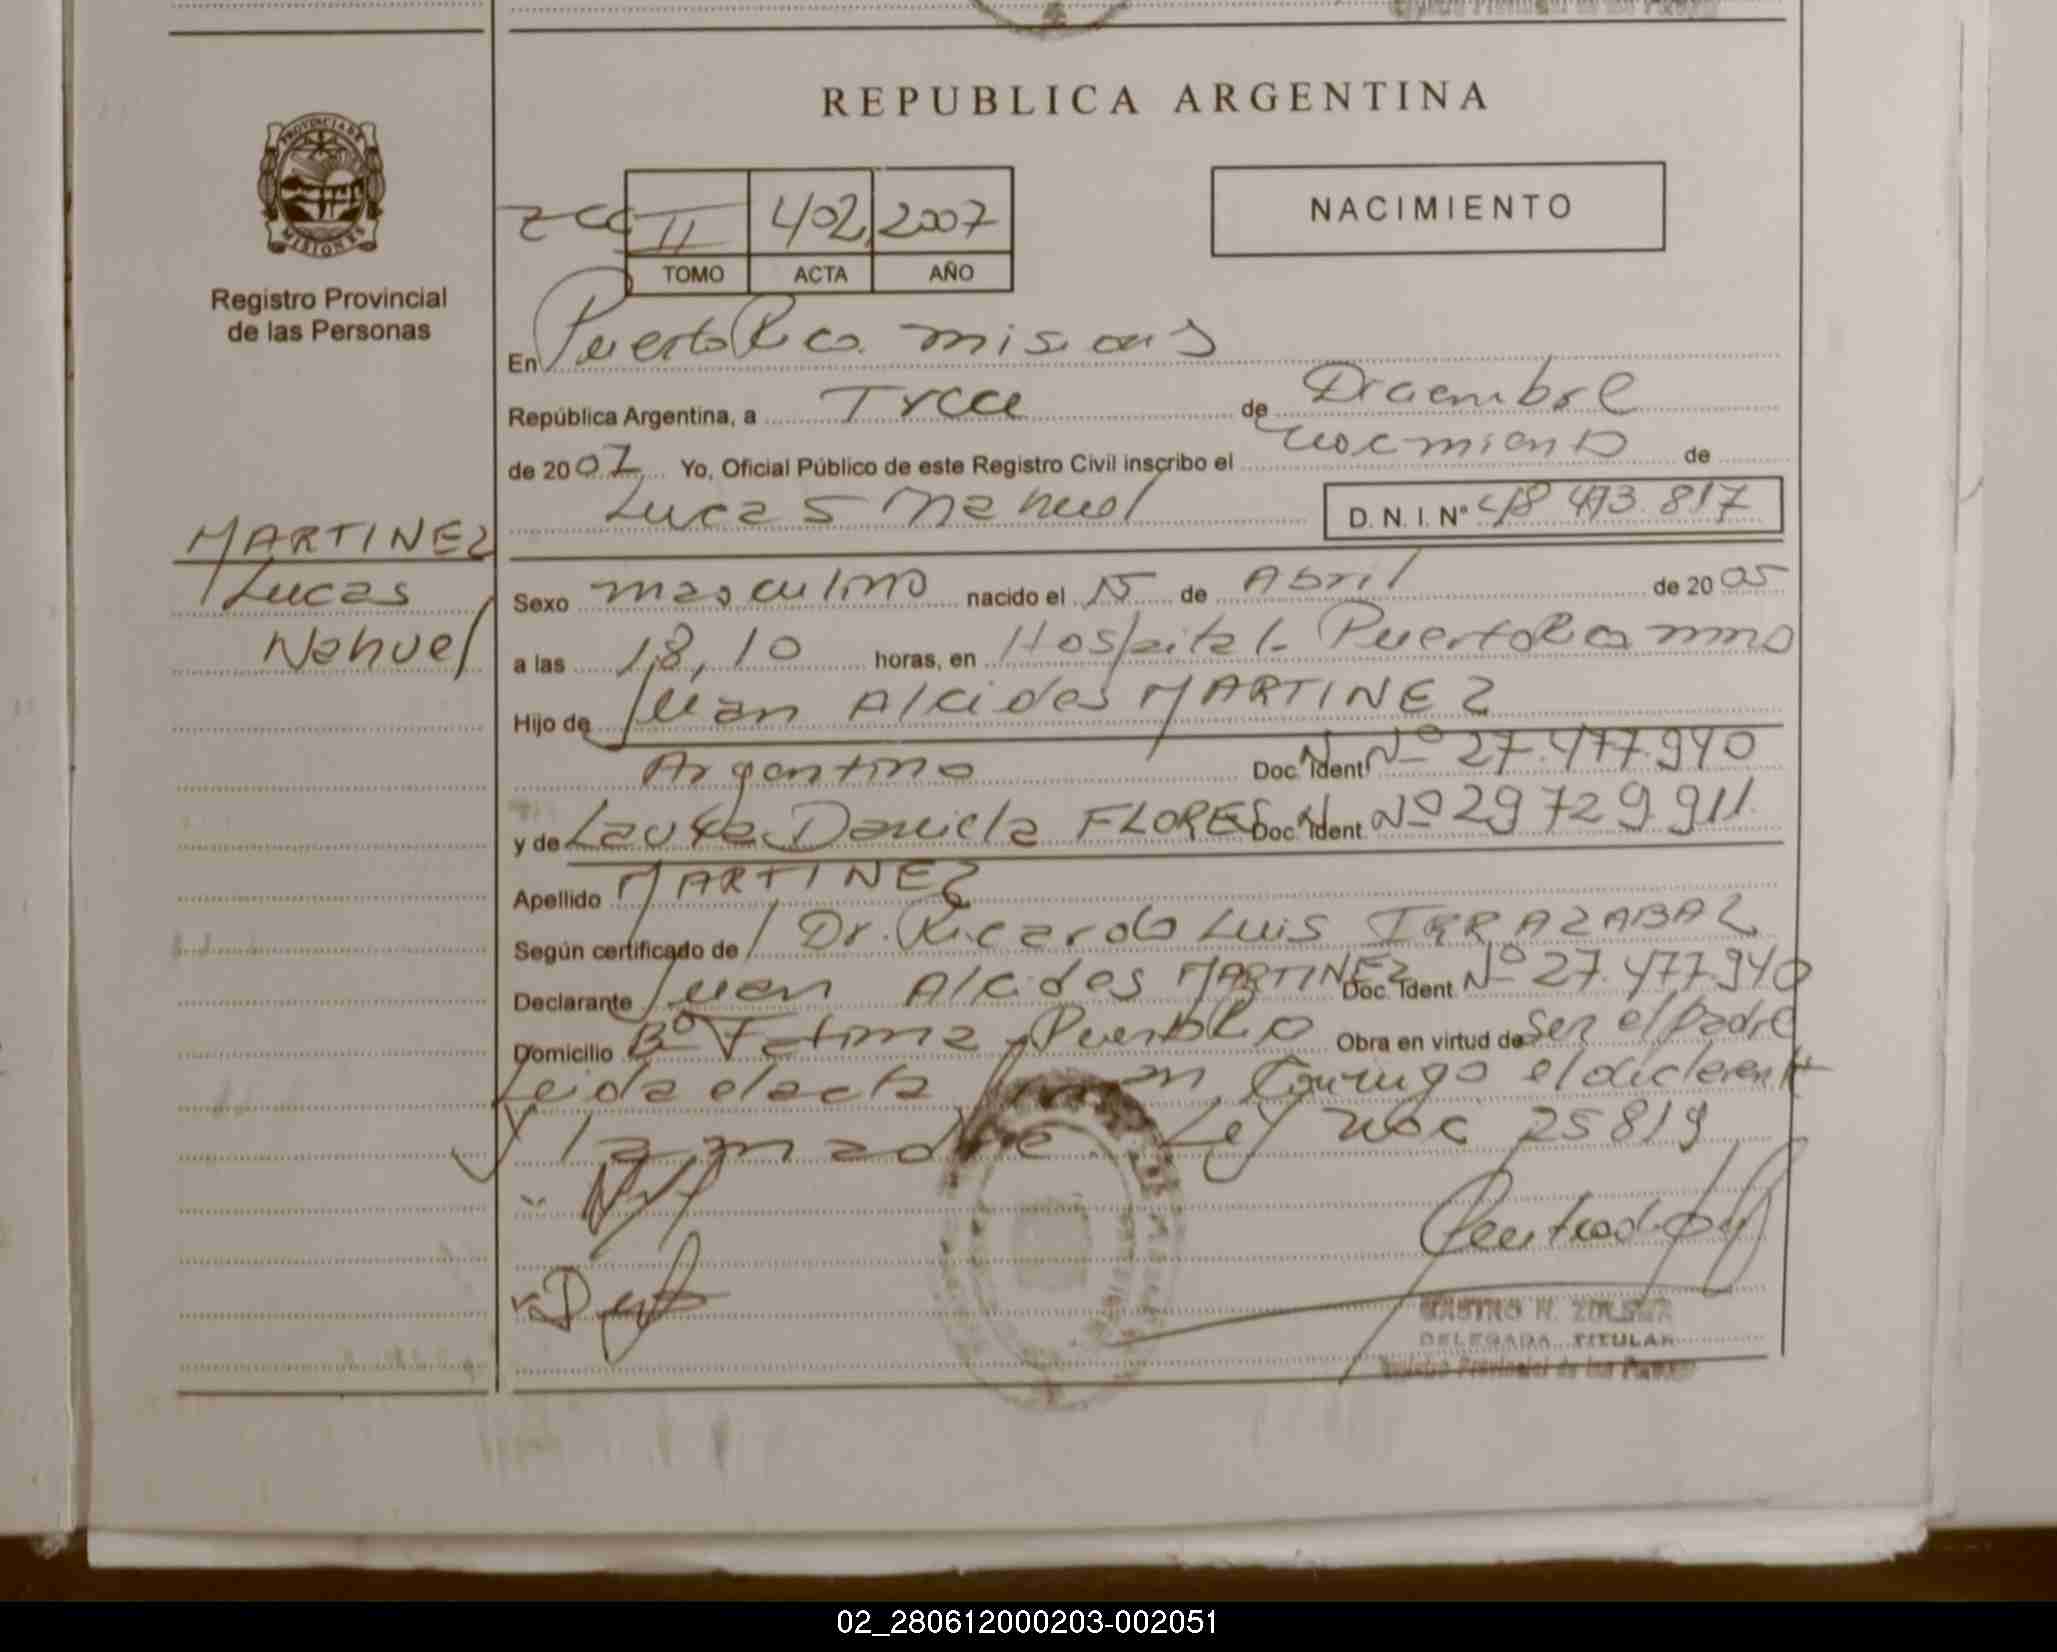 REPUBLICA ARGENTINA
PROVINCIA DE
MISIONES
Registro Provincial
de las Personas
II 402 2007
TOMO ACTA AÑO
NACIMIENTO
En Puerto Rico misiones
República Argentina, a Trece de Diciembre
de 2007 Yo, Oficial Público de este Registro Civil inscribo el nacimiento de
Lucas Nahuel D. N. I. Nº 48 473.817
MARTINEZ
Lucas
Nahuel
Sexo masculino nacido el 15 de Abril de 2005
a las 18,10 horas, en Hospital Puerto Rico mnes
Hijo de Juan Alcides MARTINEZ
Argentino Doc. Ident Nº 27.477.940
y de Laura Daniela FLORES Doc. Ident. Nº 29 729.911
Apellido MARTINEZ
Según certificado de Dr. Ricardo Luis IRRAZABAL
Declarante Juan Alcides MARTINEZ Doc. Ident. Nº 27.477.940
Domicilio Bº Fatima Puerto Rico Obra en virtud de ser el padre
Leida el acta firman conmigo el declarente
y la madre. Ley nac 25819
DELEGADA TITULAR
Registro Provincial de las Personas
02_280612000203-002051